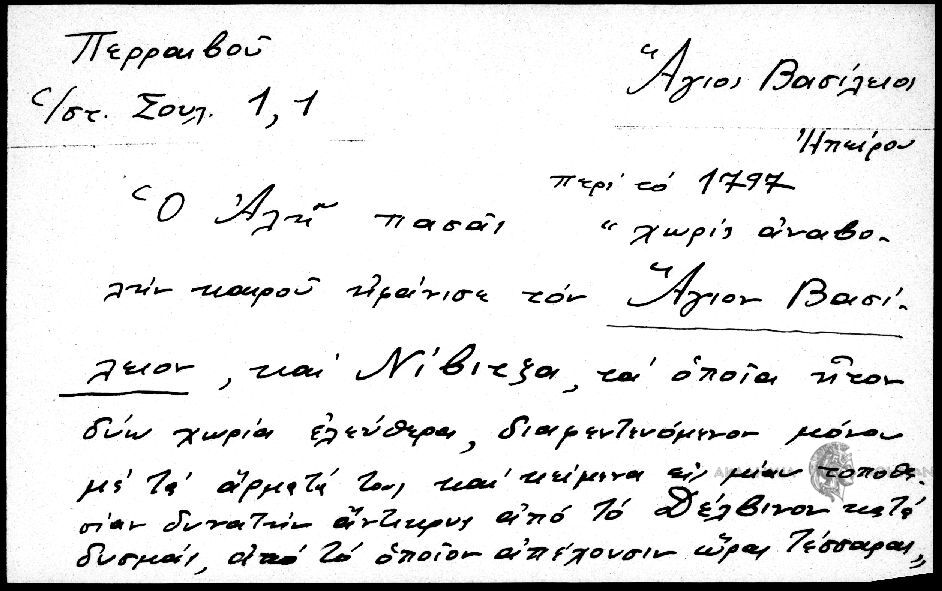 Περραιβοῦ
Ἅγιος Βασίλειος
Ἱστ. Σουλ. 1,1
Ἠπείρου
περί τό 1797
Ὁ Ἀλῆ πασᾶς " χωρίς ἀναβο-
λήν καιροῦ ἠφάνισε τόν Ἅγιον Βασί-
λειον, καί Νίβιτζα, τά ὁποῖα ἦτον
δύω χωρία ἐλεύθερα, διαφεντευόμενον μόνον
μέ τά ἄρματά των καί κείμενα εἰς μίαν τοποθε-
σίαν δυνατήν ἄντικρυς ἀπό τό Δέλβινον κατά
δυσμάς, ἀπό τό ὁποῖον ἀπέχουσιν ὥρας τέσσαρας,,